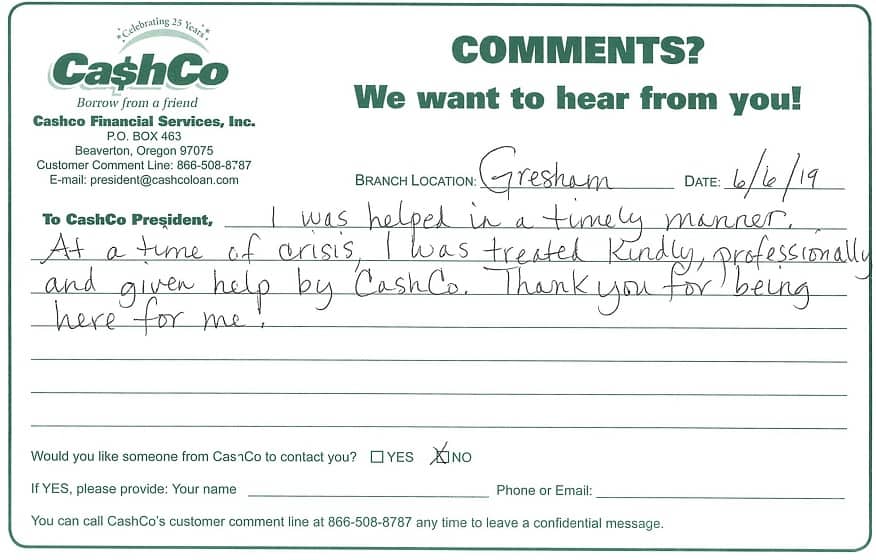 Celebrating 25 Years
Ca$hCo
Borrow from a friend
Cashco Financial Services, Inc.
P.O. BOX 463
Beaverton, Oregon 97075
Customer Comment Line: 866-508-8787
E-mail: president@cashcoloan.com
COMMENTS?
We want to hear from you!
BRANCH LOCATION: Gresham DATE: 6/6/19
To CashCo President, I was helped in a timely manner.
At a time of crisis, I was treated kindly, professionally
and given help by CashCo. Thank you for being
here for me!
Would you like someone from CashCo to contact you? YES NO
If YES, please provide: Your name Phone or Email:
You can call CashCo's customer comment line at 866-508-8787 any time to leave a confidential message.